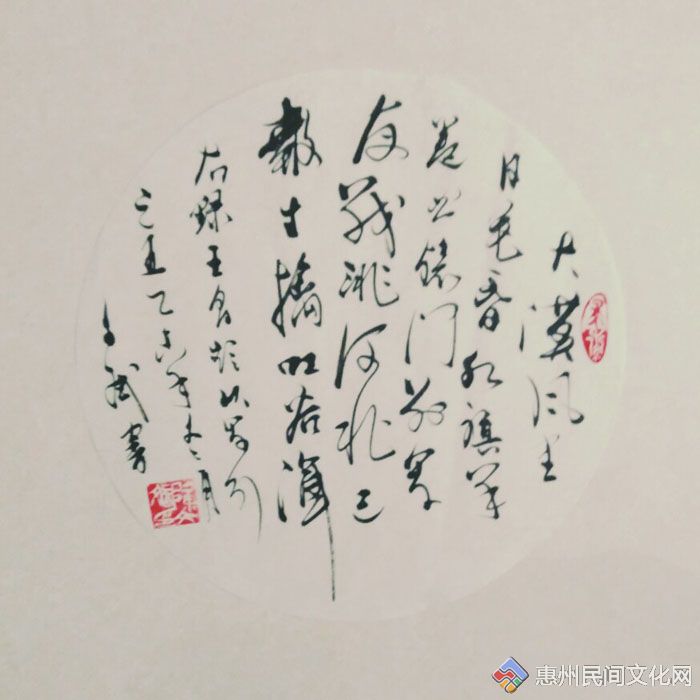 大漠风尘
日色昏红旗半
卷出辕门前军
夜战洮河北已
报生擒吐谷浑
右录王昌龄从军行
年冬月
书
惠州民间文化网